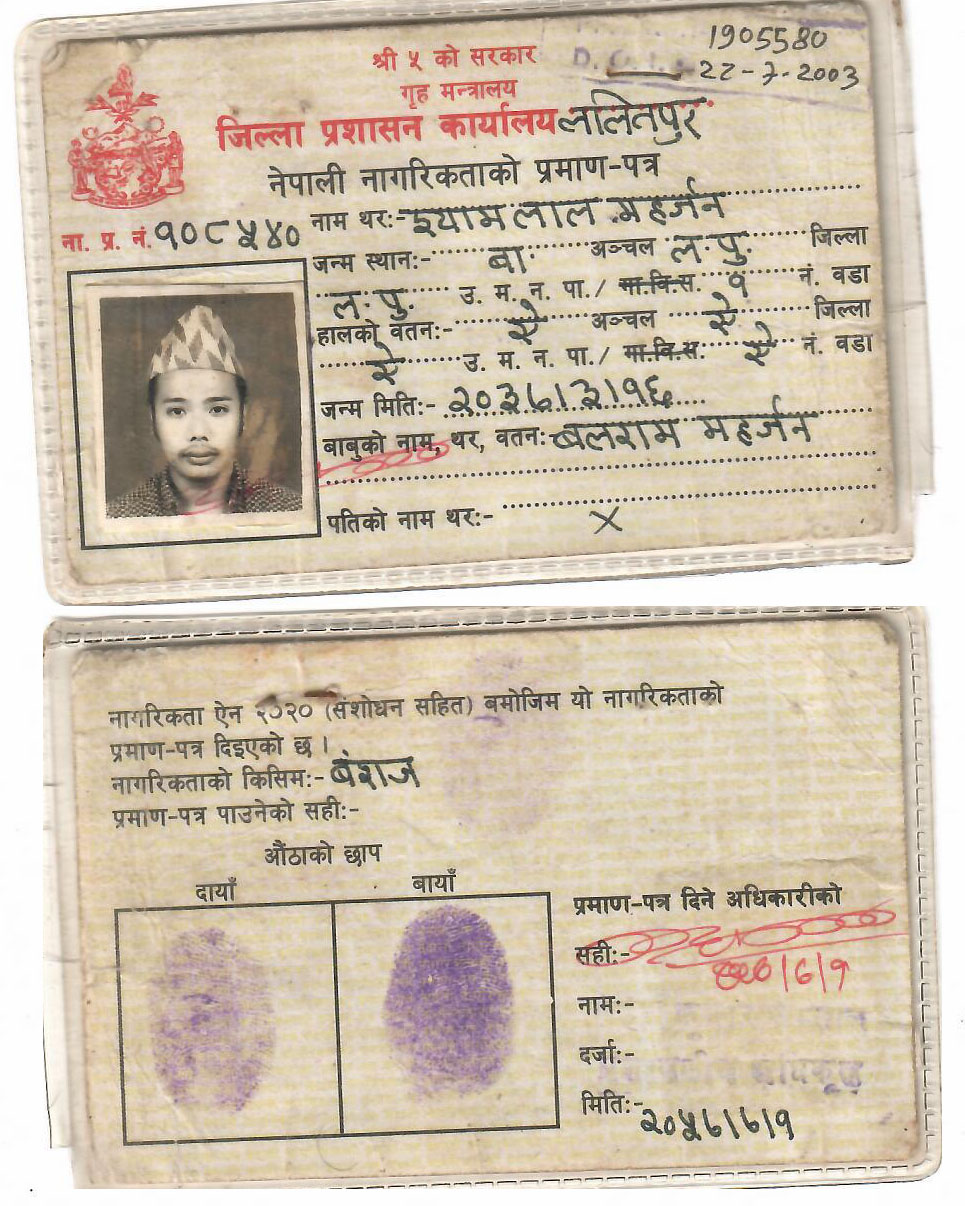 1905580
22-7-2003
श्री ५ को सरकार
गृह मन्त्रालय
जिल्ला प्रशासन कार्यालय ललितपुर
नेपाली नागरिकताको प्रमाण-पत्र
ना. प्र. नं. १०८५४०
नाम थरः- श्यामलाल महर्जन
जन्म स्थानः- बा. अञ्चल ल.पु. जिल्ला
ल.पु. उ. म. न. पा./ गा.वि.स. १ नं. वडा
हालको वतनः- ऐ अञ्चल ऐ जिल्ला
ऐ उ. म. न. पा./ गा.वि.स. ऐ नं. वडा
जन्म मितिः- २०३८।३।१६
बाबुको नाम, थर, वतनः बलराम महर्जन
पतिको नाम थरः- X
नागरिकता ऐन २०२० (संशोधन सहित) बमोजिम यो नागरिकताको
प्रमाण-पत्र दिइएको छ।
नागरिकताको किसिमः- बंशज
प्रमाण-पत्र पाउनेको सहीः-
औंठाको छाप
दायाँ बायाँ
प्रमाण-पत्र दिने अधिकारीको
सहीः-
नामः-
दर्जाः-
मितिः-